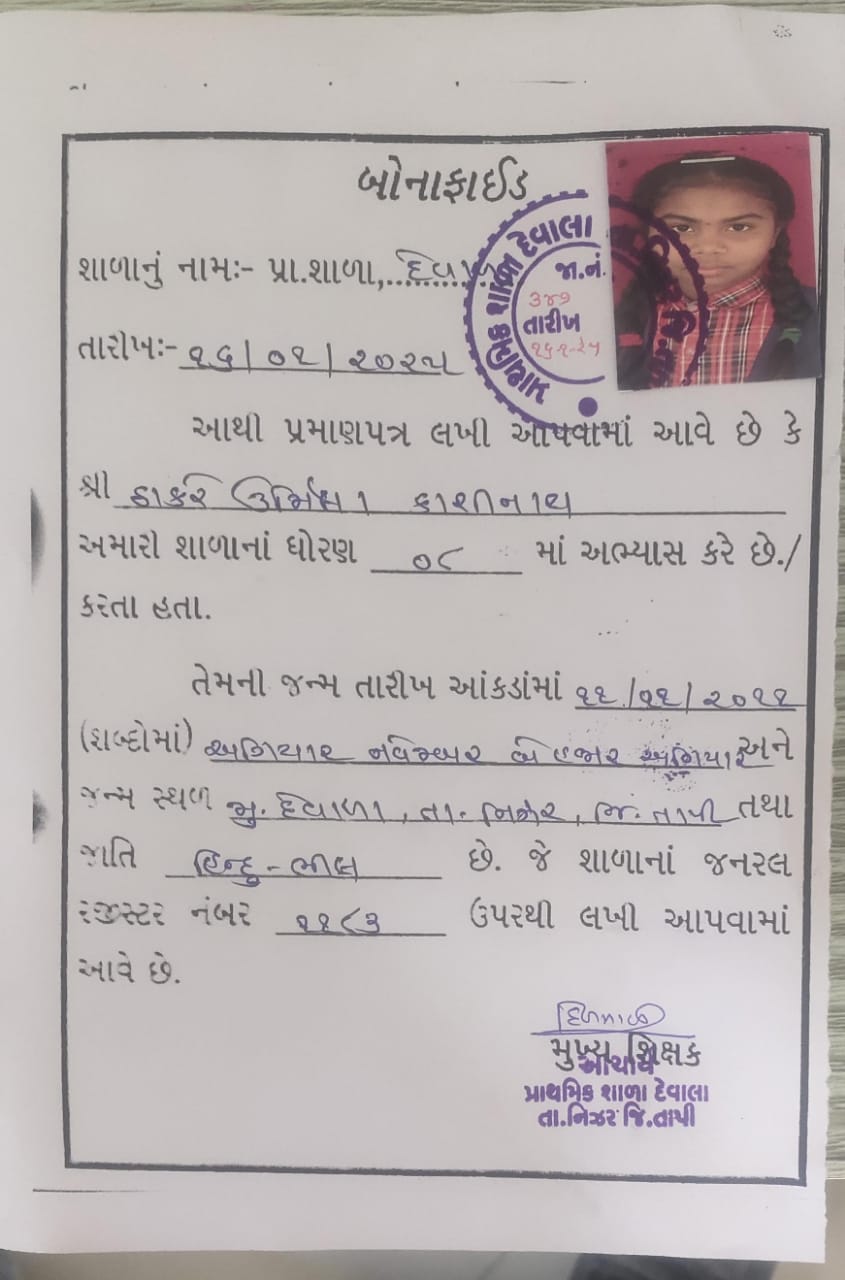 બોનાફાઈડ
શાળાનું નામઃ- પ્રા.શાળા, દેવાળા
તારીખઃ- ૧૬/૦૧/૨૦૨૫
પ્રાથમિક શાળા દેવાલા
જા.નં.
૩૪૭
તારીખ
૧૬-૧-૨૫
આથી પ્રમાણપત્ર લખી આપવામાં આવે છે કે
શ્રી ઠાકરે ઉર્મિલા કાશીનાથ
અમારી શાળાનાં ધોરણ ૦૮ માં અભ્યાસ કરે છે./
કરતા હતા.
તેમની જન્મ તારીખ આંકડાંમાં ૧૧/૧૧/૨૦૧૧
(શબ્દોમાં) અગિયાર નવેમ્બર બે હજાર અગિયાર અને
જન્મ સ્થળ મુ. દેવાળા, તા. નિઝર, જિ. તાપી તથા
જાતિ હિન્દુ - ભીલ છે. જે શાળાનાં જનરલ
રજીસ્ટર નંબર ૧૧૮૩ ઉપરથી લખી આપવામાં
આવે છે.
મુખ્ય શિક્ષક
આચાર્ય
પ્રાથમિક શાળા દેવાલા
તા.નિઝર જિ.તાપી